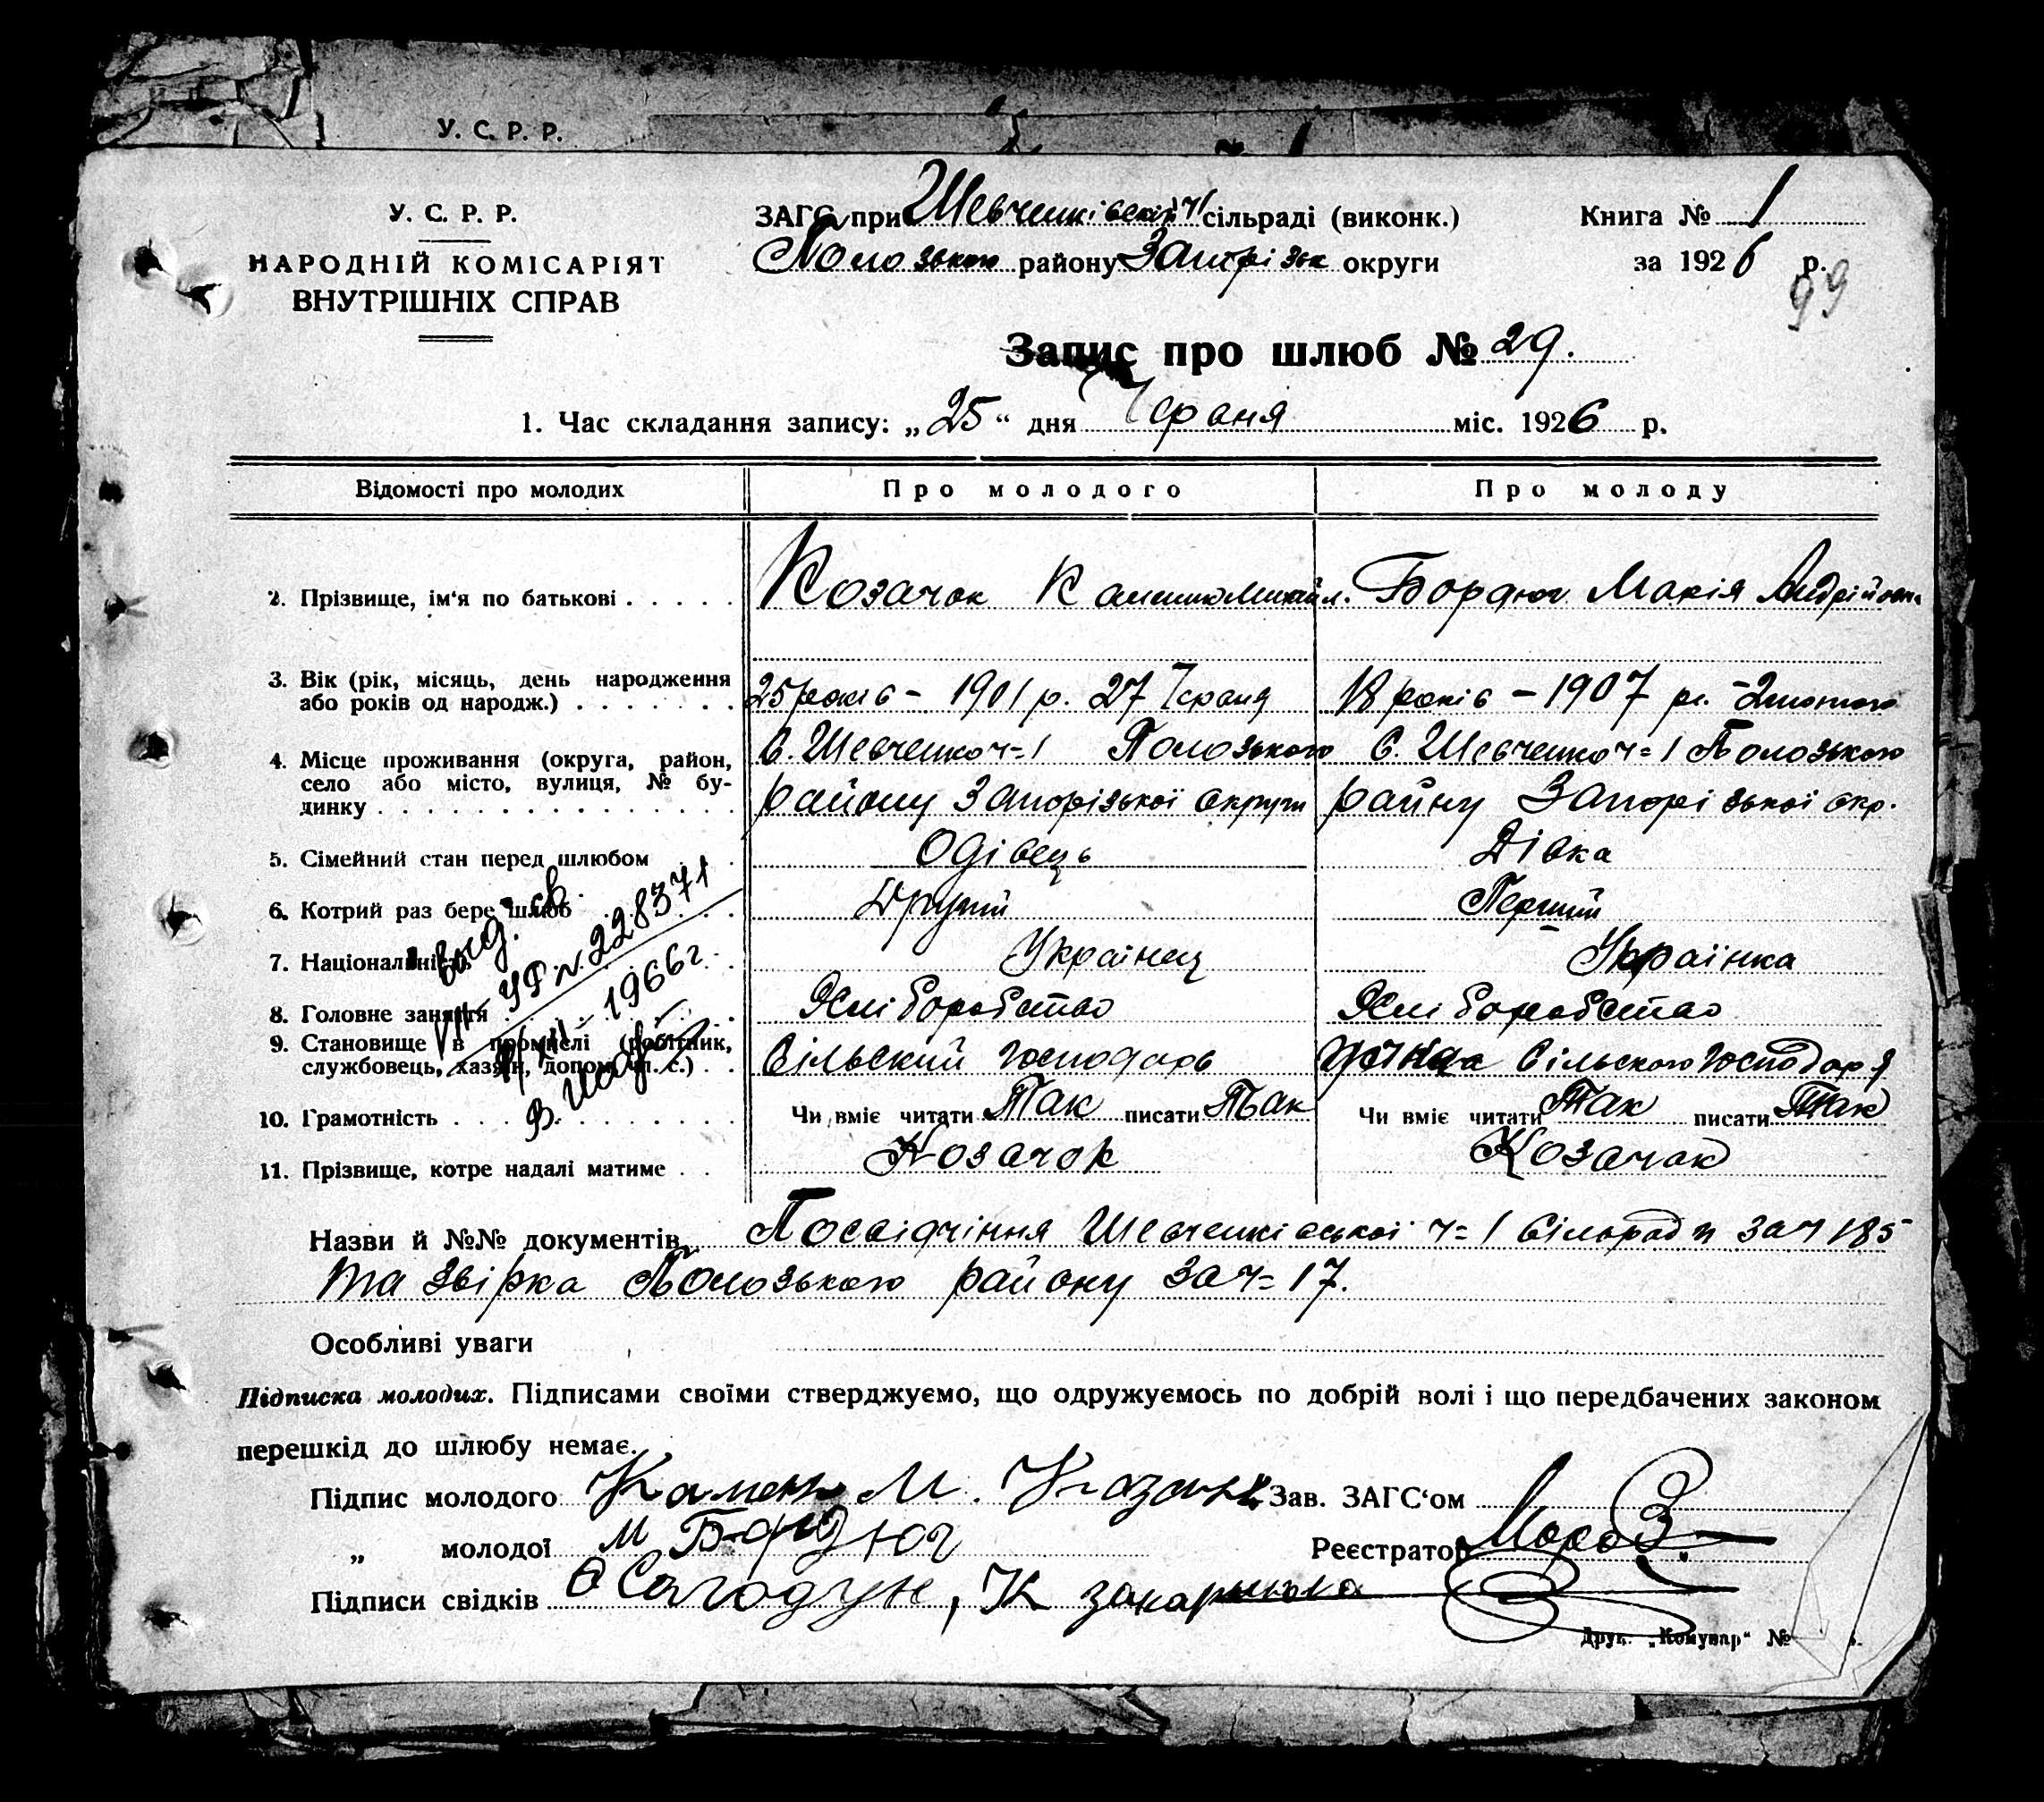 У. С. Р. Р.
У. С. Р. Р.
НАРОДНІЙ КОМІСАРІЯТ
ВНУТРІШНІХ СПРАВ
ЗАГС при Шевченківській ч1 сільраді (виконк.)
Пологського району Запорізьк округи
Книга № 1
за 1926 р.
99
Запис про шлюб № 29.
1. Час складання запису: „25“ дня Червня міс. 1926 р.
Відомості про молодих Про молодого Про молоду
2. Прізвище, ім‘я по батькові . . . . . Козачок Михайл. Бордюг Марія Андрійовна
3. Вік (рік, місяць, день народження
або років од народж.) . . . . . . . 25 років – 1901 р. 27 Червня 18 років – 1907 р. – 2 лютого
4. Місце проживання (округа, район,
село або місто, вулиця, № бу-
динку . . . . . . . . . . . . . . .
С. Шевченко ч=1 Полозького С. Шевченко ч=1 Полозького
району Запорізької округи району Запорізької окр.
5. Сімейний стан перед шлюбом . . . Одівець Дівка
6. Котрий раз бере шлюб . . . . . Другий Перший
7. Національність . . . . . Українец Українка
8. Головне заняття . . . . . Хліборобство Хліборобство
9. Становище в промислі (робітник,
службовець, хазяїн, допом. чл. с.) . . Сільский господарь Сільского господаря
10. Грамотність . . . . . . . . . . Чи вміє читати Так писати Так Чи вміє читати Так писати Так
11. Прізвище, котре надалі матиме . . Козачок Козачок
выд. св.
УР № 228371
1966 г.
Назви й №№ документів Посвідчіння Шевченківської ч=1 сільради за ч 185
та Звірка Полозького району за ч= 17.
Особливі уваги
Підписка молодих. Підписами своїми стверджуємо, що одружуємось по добрій волі і що передбачених законом
перешкід до шлюбу немає.
Підпис молодого М. Козачок Зав. ЗАГС‘ом
„ молодої М Бордюг Реєстратор Мороз
Підписи свідків
Друк. „Комунар“ №